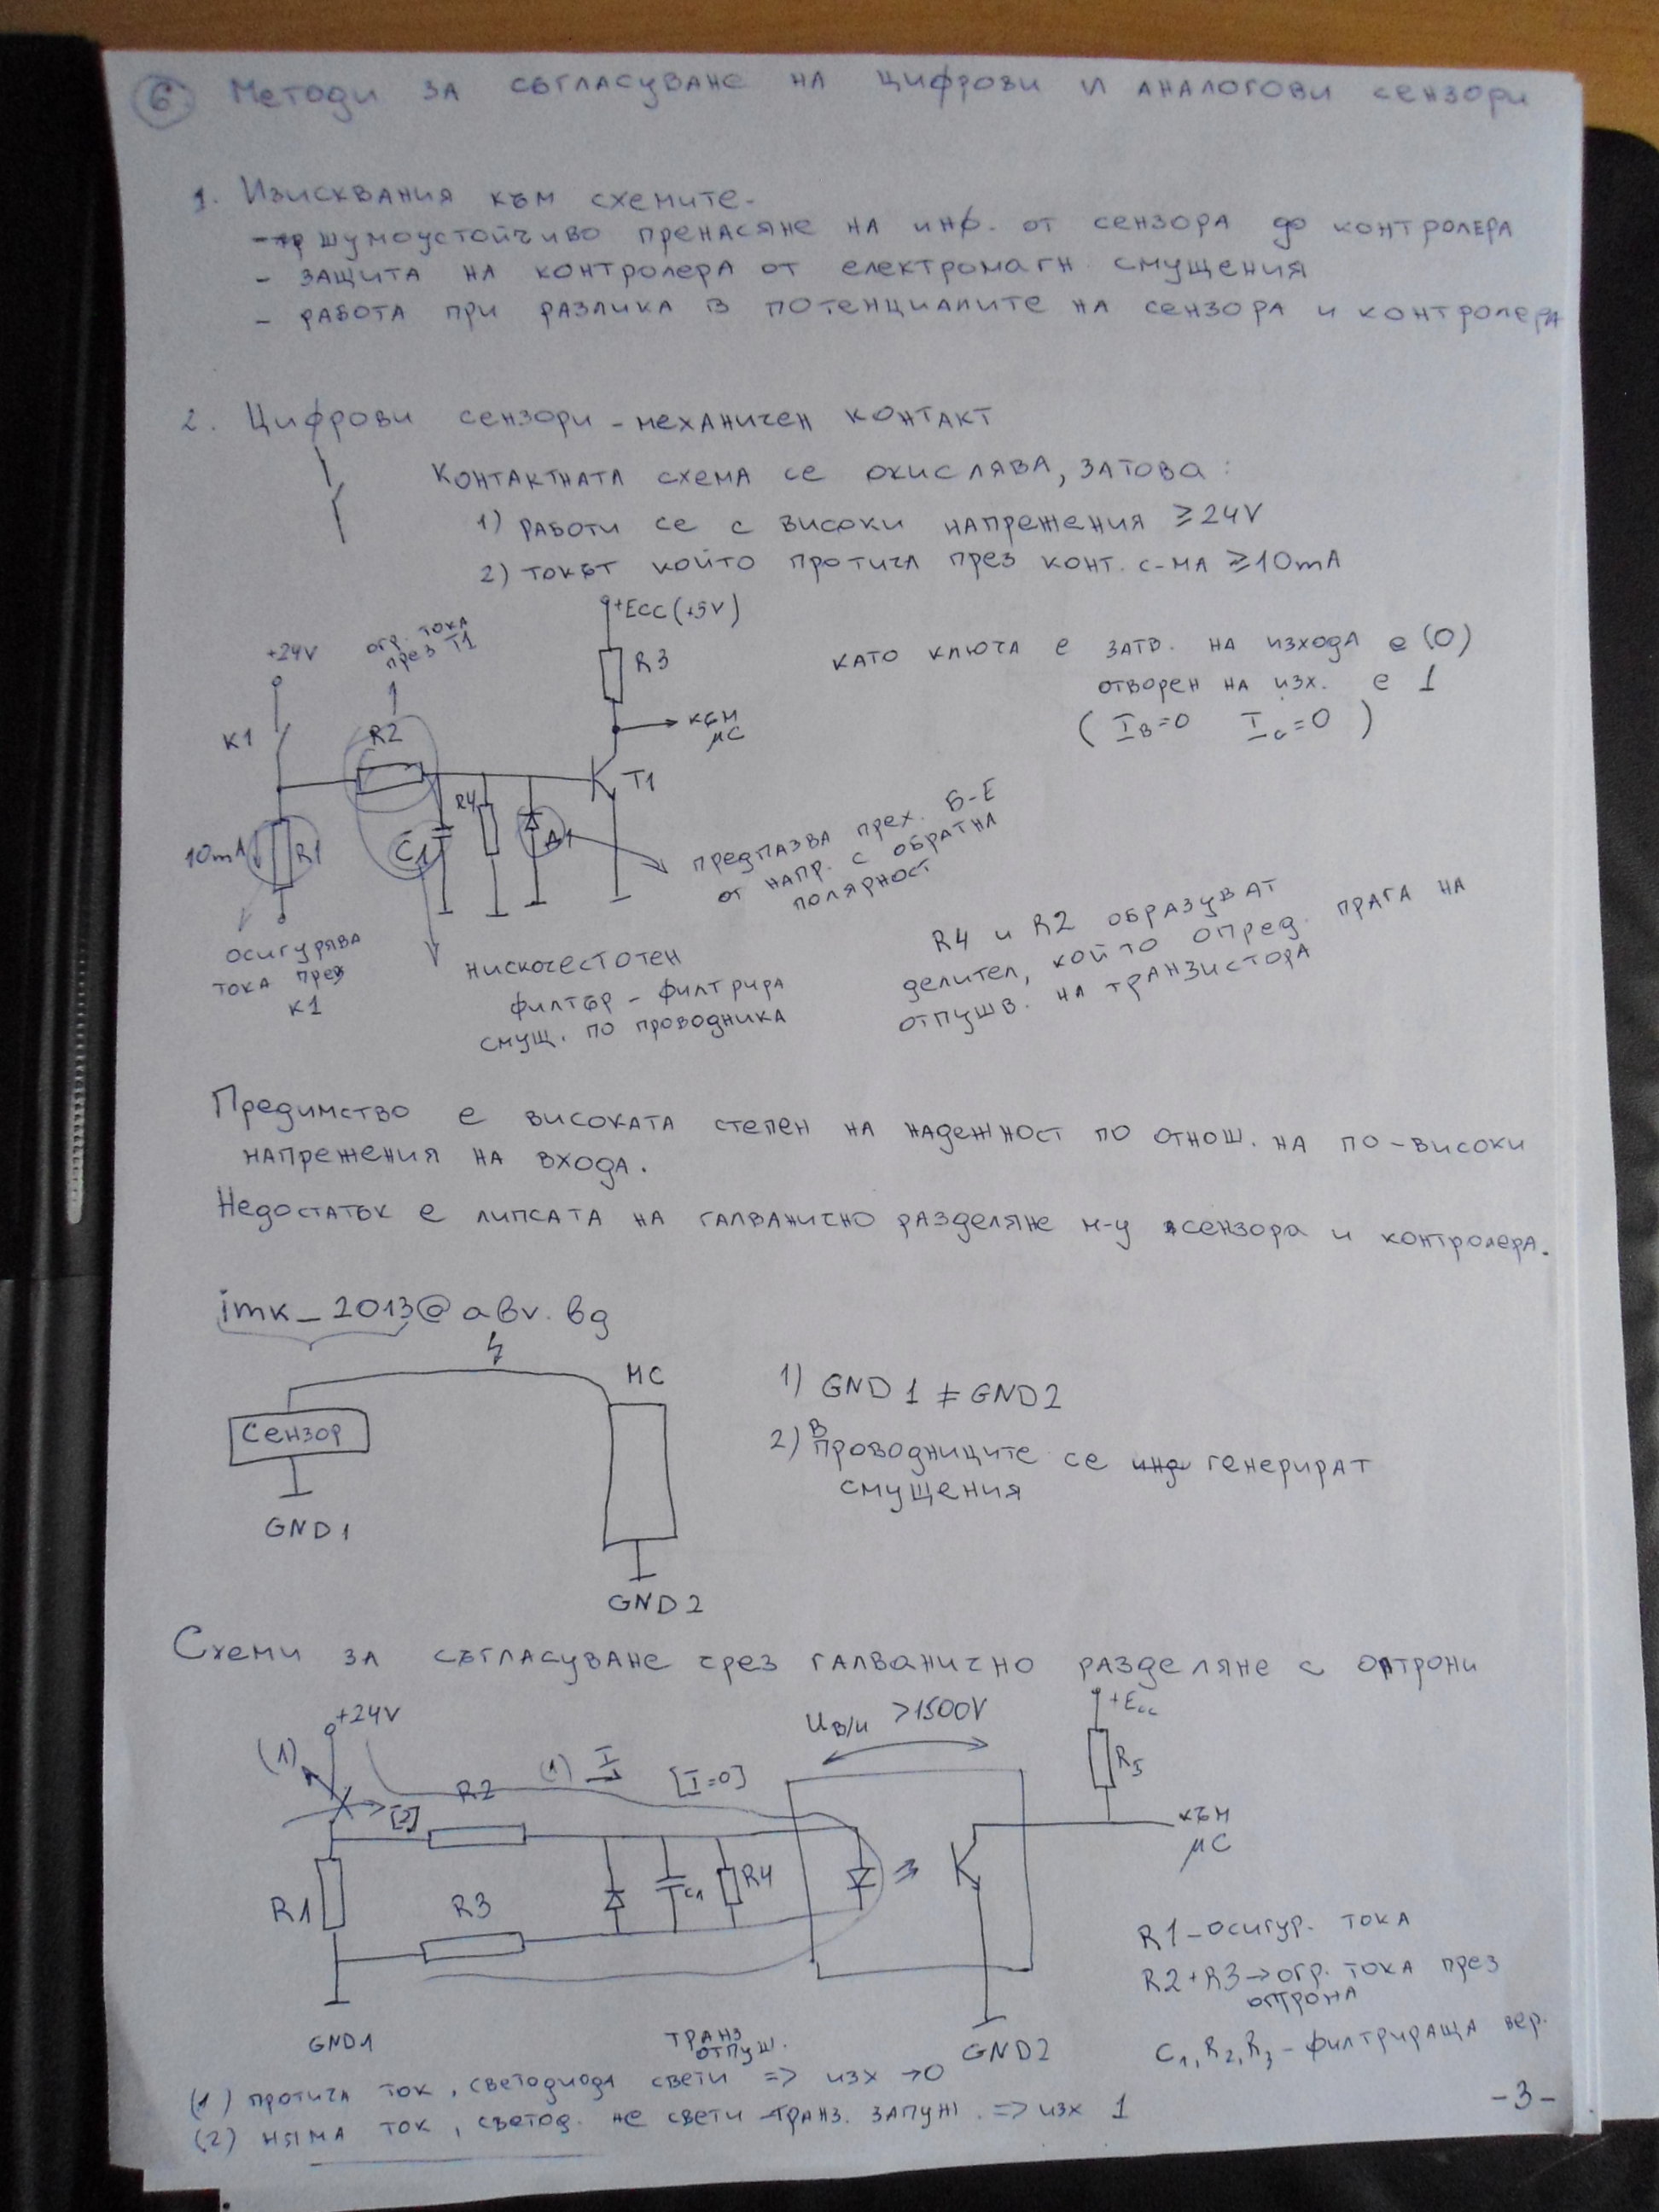 6 Методи за съгласуване на цифрови и аналогови сензори
1. Изисквания към схемите.
- шумоустойчиво пренасяне на инф. от сензора до контролера
- защита на контролера от електромагн. смущения
- работа при разлика в потенциалите на сензора и контролера
2. Цифрови сензори - механичен контакт
Контактната схема се окислява, затова:
1) работи се с високи напрежения ≥24V
2) токът който протича през конт. с-ма ≥10mA
+24V
огр. тока
през T1
+Ecc (+5V)
R3
към
μC
K1
R2
T1
10mA
R1
C1
R4
Д1
като ключа е затв. на изхода е (0)
отворен на изх. е 1
( IB=0 Ic=0 )
предпазва прех. Б-Е
от напр. с обратна
полярност
осигурява
тока през
K1
нискочестотен
филтър - филтрира
смущ. по проводника
R4 и R2 образуват
делител, който опред. прага на
отпушв. на транзистора
Предимство е високата степен на надежност по отнош. на по-високи
напрежения на входа.
Недостатък е липсата на галванично разделяне м-у сензора и контролера.
imk_2013@abv.bg
МС
Сензор
GND1
GND2
1) GND1 ≠ GND2
2) В проводниците се генерират
смущения
Схеми за съгласуване чрез галванично разделяне с оптрони
+24V
(1)
[2]
R2
(1) I
[I=0]
Uв/и >1500V
+Ecc
R5
към
μC
R1
R3
C1
R4
GND1
GND2
R1 - осигур. тока
R2+R3→огр. тока през
оптрона
C1, R2, R3 - филтрираща вер.
транз
отпуш.
(1) протича ток, светодиода свети => изх →0
(2) няма ток, светод. не свети транз. запуш. => изх 1
-3-